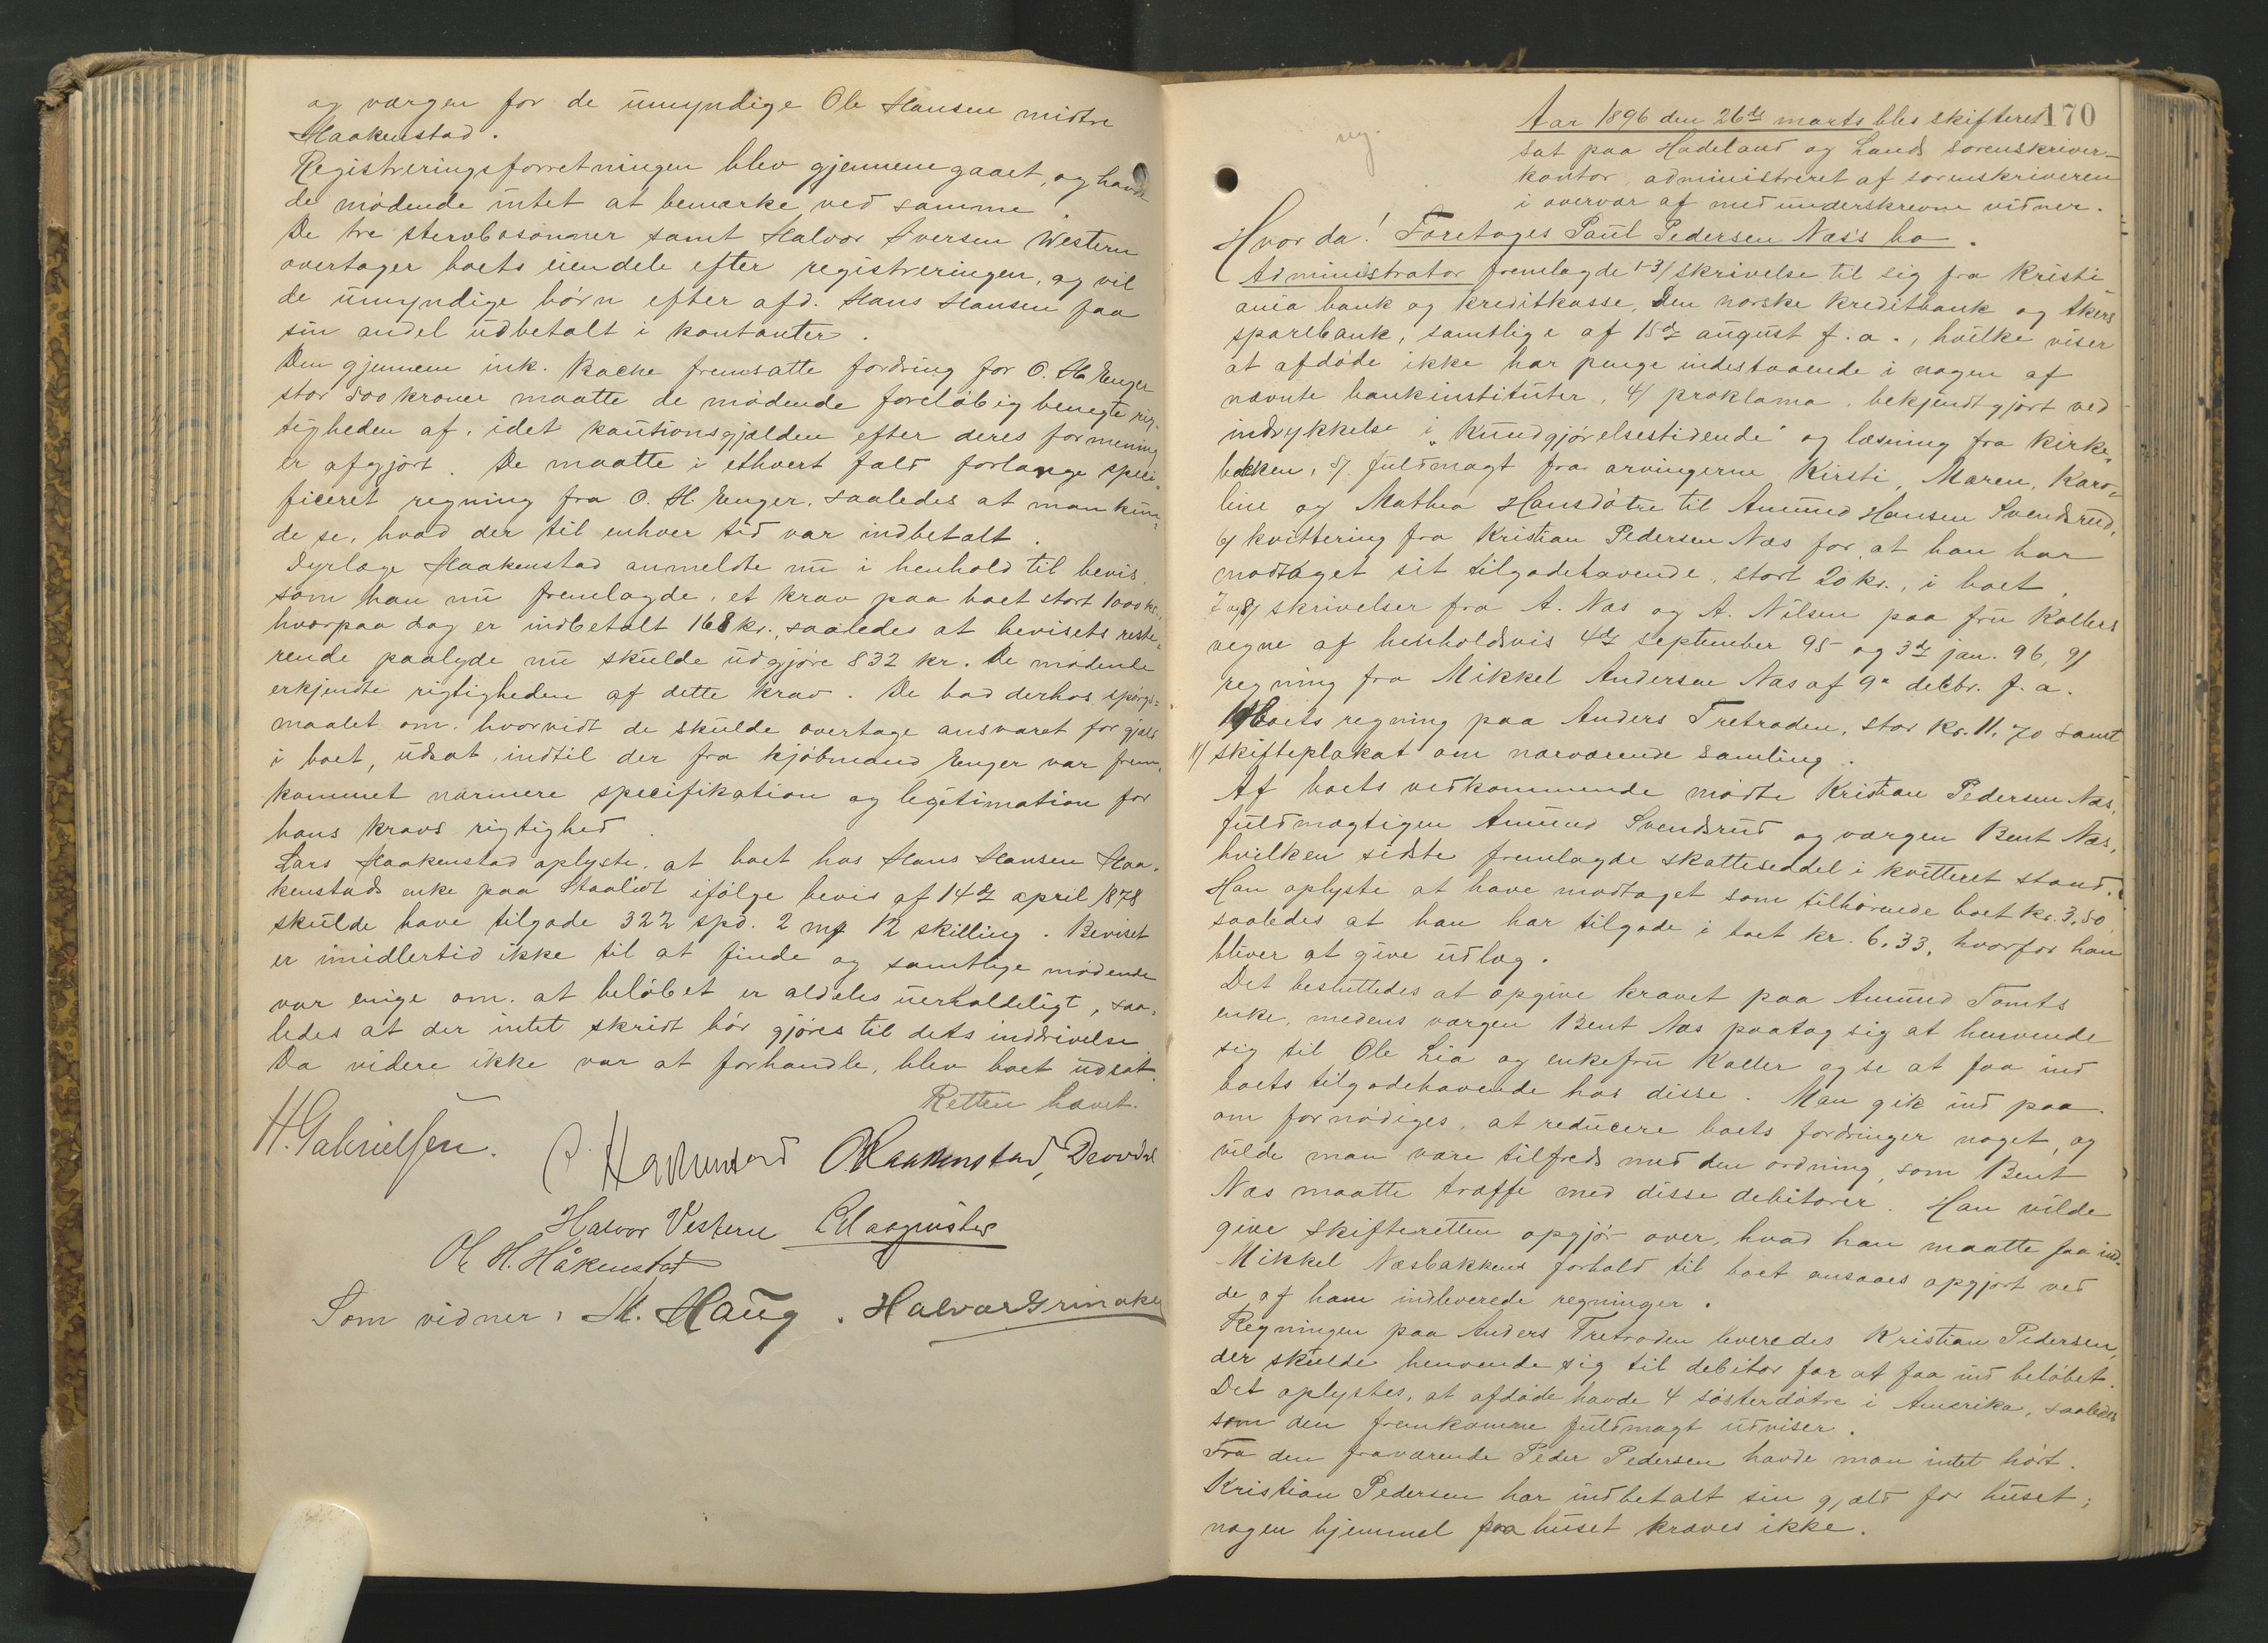 og værgen for de umyndige Ole Hansen midtre
Haakenstad.
Registreringsforretningen blev gjennemgaaet, og havde
de mødende intet at bemærke ved samme.
De tre stervbosønner samt Halvor Iversen Western
overtager boets eiendele efter registreringen, og vil
de umyndige børn efter afd. Hans Hansen faa
sin andel udbetalt i kontanter.
Den gjennem ink. Bache fremsatte fordring for O. H. Enger
stor 800 kroner maatte de mødende foreløbig benegte rig-
tigheden af, idet kautionsgjælden efter deres formening
er afgjort. De maatte i ethvert fald forlange speci-
ficeret regning fra O. H. Enger, saaledes at man kun-
de se, hvad der til enhver tid var indbetalt.
Dyrlæge Haakenstad anmeldte nu i henhold til bevis,
som han nu fremlagde, et krav paa boet stort 1000 kr.,
hvorpaa dog er indbetalt 168 kr., saaledes at bevisets reste-
rende paalydende nu skulde udgjøre 832 kr. De mødende
erkjendte rigtigheden af dette krav. De bad derhos spørgs-
maalet om, hvorvidt de skulde overtage ansvaret for gjæld
i boet, udsat, indtil der fra kjøbmand Enger var frem-
kommet nærmere specifikation og legitimation for
hans kravs rigtighed.
Lars Haakenstad oplyste, at boet hos Hans Hansen Haa-
kenstads enke paa Staalidt ifølge bevis af 14de april 1878
skulde have tilgode 322 spd. 2 mf 12 skilling. Beviset
er imidlertid ikke til at finde og samtlige mødende
var enige om, at beløbet er aldeles uerholdeligt, saa-
ledes at der intet skridt bør gjøres til dets inddrivelse.
Da videre ikke var at forhandle, blev boet udsat.
Retten hævet.
H. Gabrielsen. Haakenstad OHaakenstad,
Halvor Vestern
Ole H. Håkenstad
Som vidner: M. Haug. Halvor Grinaker
170
Aar 1896 den 26de marts blev skifteret
sat paa Hadeland og Lands sorenskriver-
kontor, administreret af sorenskriveren
i overvær af medunderskrevne vidner.
Hvor da! Foretages Paul Pedersen Næs's bo.
Administrator fremlagde 1-3/ skrivelse til sig fra Kristi-
ania bank og kreditkasse, Den norske kreditbank og Akers
sparebank, samtlige af 15de august f. a., hvilke viser
at afdøde ikke har penge indestaaende i nogen af
nævnte bankinstituter, 4/ proklama, bekjendtgjort ved
indrykkelse i "Kundgjørelsestidende" og læsning fra kirke-
bakken, 5/ fuldmagt fra arvingerne Kirsti, Maren, Karo-
line og Mathea Hansdøtre til Amund Hansen Svendsrud,
6/ kvittering fra Kristian Pedersen Næs for, at han har
modtaget sit tilgodehavende, stort 20 kr., i boet,
7 og 8/ skrivelser fra A. Næs og A. Nilsen paa fru Kollers
vegne af henholdsvis 4de september 95 og 3de jan. 96, 9/
regning fra Mikkel Andersen Næs af 9e decbr. f. a.
10/ boets regning paa Anders Tretraden, stor kr. 11,70 samt
11/ skifteplakat om nærværende samling.
Af boets vedkommende mødte Kristian Pedersen Næs,
fuldmægtigen Amund Svendsrud og værgen Bent Næs,
hvilken sidste fremlagde skatteseddel i kvitteret stand.
Han oplyste at have modtaget som tilhørende boet kr. 3,50
saaledes at han har tilgode i boet kr. 6,33, hvorfor han
bliver at give udlæg.
Det besluttedes at opgive kravet paa Amund Tomts
enke, medens værgen Bent Næs paatog sig at henvende
sig til Ole Lia og enkefru Koller og se at faa ind
boets tilgodehavende hos disse. Man gik ind paa,
om fornødiges, at reducere boets fordringer noget, og
vilde man være tilfreds med den ordning, som Bent
Næs maatte træffe med disse debitorer. Han vilde
give skifteretten opgjør over, hvad han maatte faa ind.
Mikkel Næsbakkens forhold til boet ansaaes opgjort ved
de af ham indleverede regninger.
Regningen paa Anders Tretraden leveredes Kristian Pedersen,
der skulde henvende sig til debitor for at faa ind beløbet.
Det oplystes, at afdøde havde 4 søsterdøtre i Amerika, saaledes
som den fremkomne fuldmagt udviser.
Fra den fraværende Peder Pedersen havde man intet hørt.
Kristian Pedersen har indbetalt sin gjæld for huset;
nogen hjemmel paa huset kræves ikke.